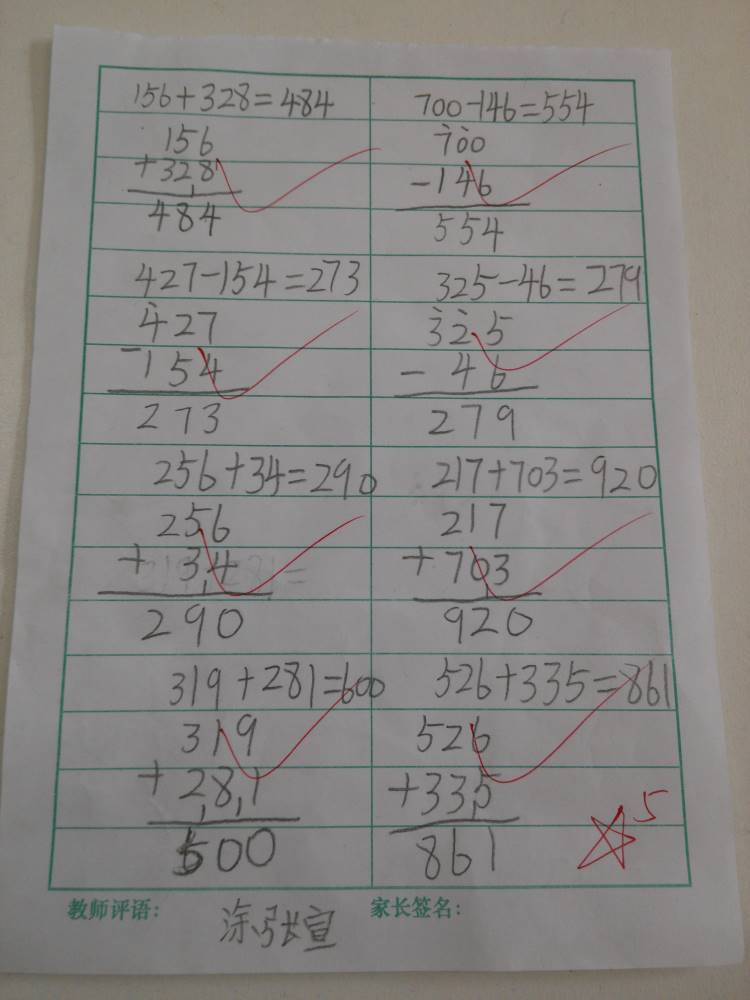 156+328=484
156
+328
484
700-146=554
700
-146
554
427-154=273
427
-154
273
325-46=279
325
-46
279
256+34=290
256
+34
290
217+703=920
217
+703
920
319+281=600
319
+281
600
526+335=861
526
+335
861
5
教师评语:
涂张宣
家长签名: